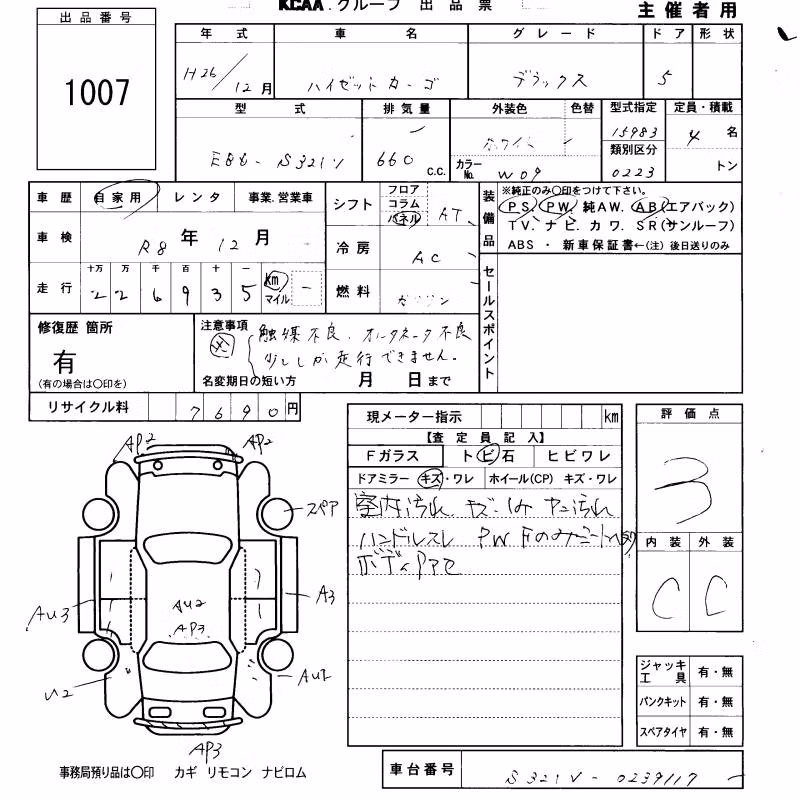 KCAA.グループ 出品票
主催者用
出品番号
1007
年式 車名 グレード ドア 形状
H26/12月 ハイゼットカーゴ デラックス 5
型式 排気量 外装色 色替 型式指定 定員・積載
EBD- S321V 660 C.C. ホワイト 15983 4 名
カラーNo. W09 類別区分 0223 トン
車歴 自家用 レンタ 事業.営業車
車検 R8年 12月
走行 十万 万 千 百 十 一
2 2 6 9 3 5 km マイル
シフト フロア コラム パネル AT
冷房 AC
燃料 ガソリン
装備品 ※純正のみ〇印をつけて下さい。
PS. PW. 純AW. AB(エアバック)
TV. ナビ. カワ. SR(サンルーフ)
ABS ・ 新車保証書←(注) 後日送りのみ
セールスポイント
修復歴 箇所
有
(有の場合は〇印を)
注意事項
触媒不良、オルタネータ不良
少ししか走行できません。
名変期日の短い方 月 日まで
リサイクル料 7690円
現メーター指示 km
【査定員記入】
Fガラス トビ石 ヒビワレ
ドアミラー キズ・ワレ ホイール(CP) キズ・ワレ
室内汚れ キズ・しみ ヤニ汚れ
ハンドルスレ PW Fのみ
ボディPアセ
評価点
3
内装 外装
C C
ジャッキ工具 有・無
パンクキット 有・無
スペアタイヤ 有・無
AP2 AP2
スペア
AU3 AU2 A3
AP3
U2 AU2
AP3
事務局預り品は〇印 カギ リモコン ナビロム
車台番号 S321V-0239117